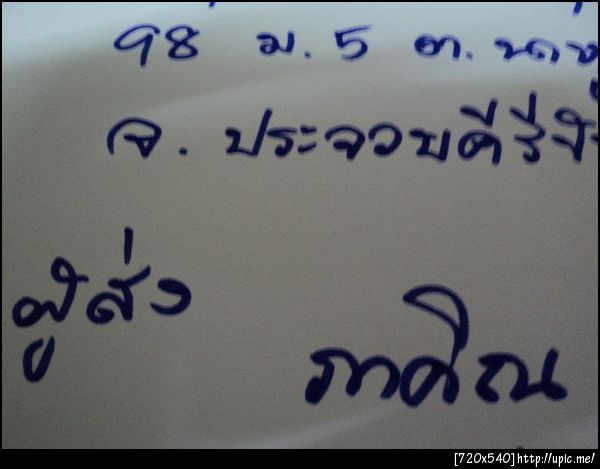 98 ม. 5 ต.
จ. ประจวบคีรีขั
ผู้ส่ง
ภาคิณ
[720x540]http://upic.me/